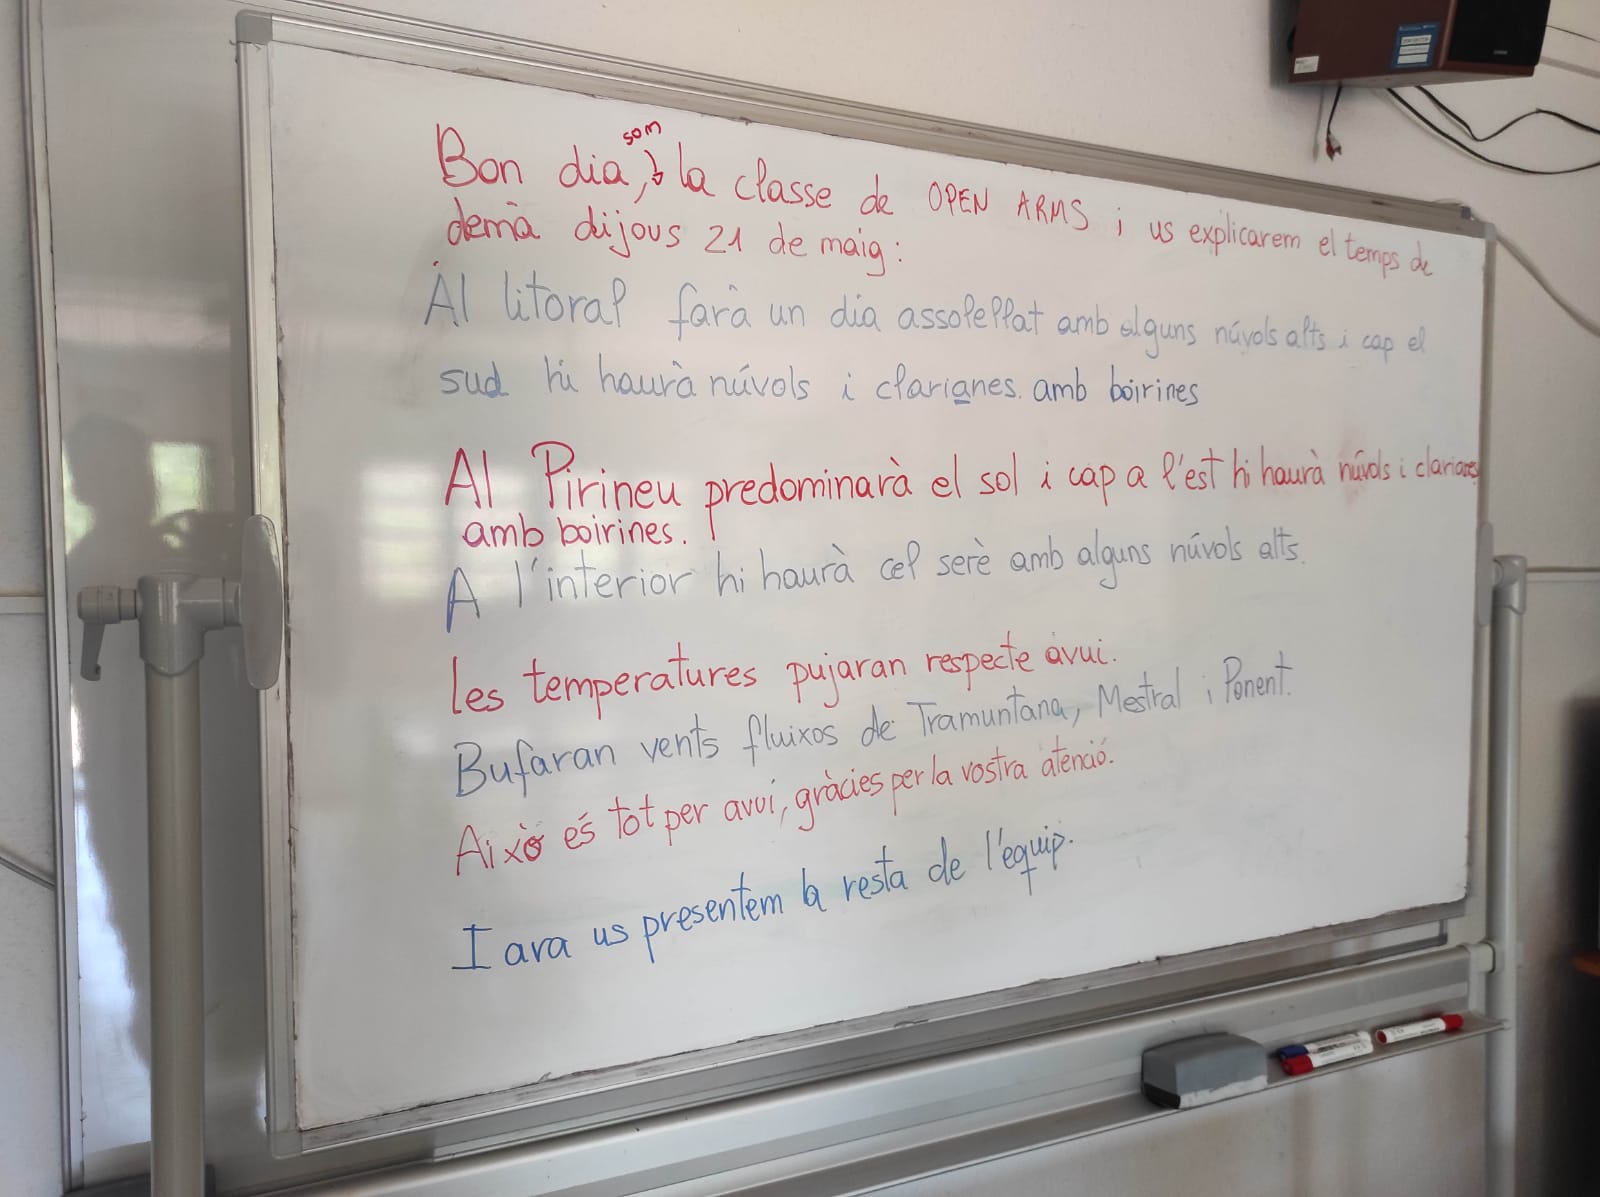 Bon dia, som la classe de OPEN ARMS i us explicarem el temps de
demà dijous 21 de maig:
Al litoral farà un dia assolellat amb alguns núvols alts i cap el
sud hi haurà núvols i clarianes. amb boirines
Al Pirineu predominarà el sol i cap a l'est hi haurà núvols i clarianes
amb boirines.
A l'interior hi haurà cel serè amb alguns núvols alts.
les temperatures pujaran respecte avui.
Bufaran vents fluixos de Tramuntana, Mestral i Ponent.
Això és tot per avui, gràcies per la vostra atenció.
I ara us presentem la resta de l'equip.